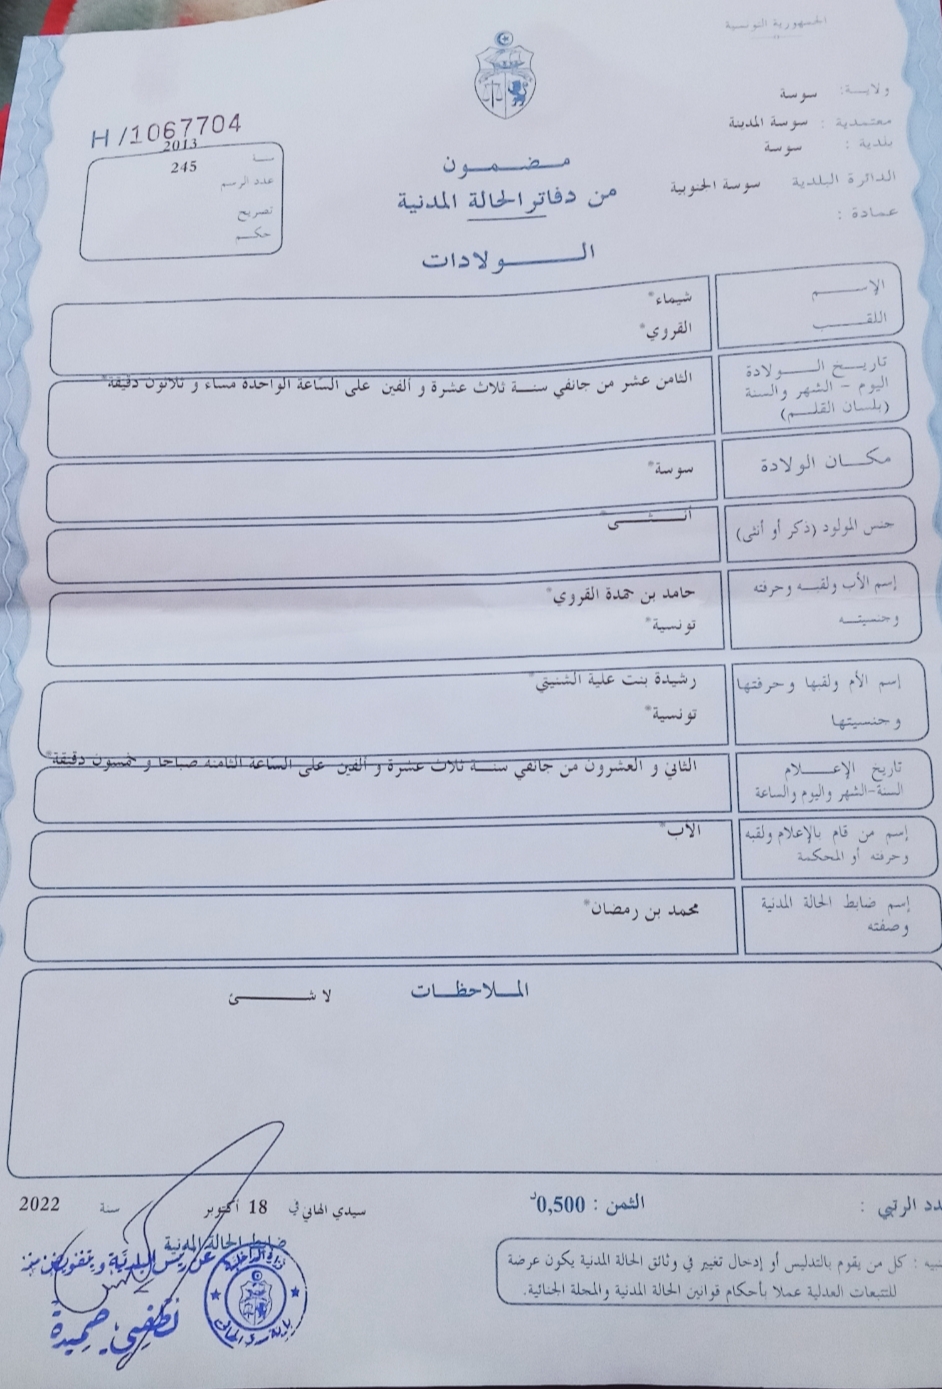 الجمهورية التونسية
ولاية: سوسة
معتمدية : سوسة المدينة
بلدية : سوسة
الدائرة البلدية سوسة الجنوبية
عمادة :
H/1067704
سنة 2013
عدد الرسم 245
تصريح
حكم
مضمون
من دفاتر الحالة المدنية
الولادات
الإسم شيماء*
اللقب القروي*
تاريخ الولادة
اليوم - الشهر والسنة
(بلسان القلم)
الثامن عشر من جانفي سنة ثلاث عشرة و ألفين على الساعة الواحدة مساء و ثلاثون دقيقة*
مكان الولادة سوسة*
جنس المولود (ذكر أو أنثى) أنثى*
إسم الأب ولقبه وحرفته
وجنسيته
حامد بن حمدة القروي*
تونسية*
إسم الأم ولقبها وحرفتها
وجنسيتها
رشيدة بنت علية الشنيتي*
تونسية*
تاريخ الإعلام
السنة-الشهر واليوم والساعة
الثاني و العشرون من جانفي سنة ثلاث عشرة و ألفين على الساعة الثامنة صباحا و خمسون دقيقة*
إسم من قام بالإعلام ولقبه
وحرفته أو المحكمة
الأب*
إسم ضابط الحالة المدنية
وصفته
محمد بن رمضان*
الملاحظات
لا شئ
الرتبي :
الثمن : 0,500د
سيدي الهاني في 18 أكتوبر سنة 2022
ضابط الحالة المدنية
: كل من يقوم بالتدليس أو إدخال تغيير في وثائق الحالة المدنية يكون عرضة
للتتبعات العدلية عملا بأحكام قوانين الحالة المدنية والمجلة الجنائية.
وزارة الداخلية